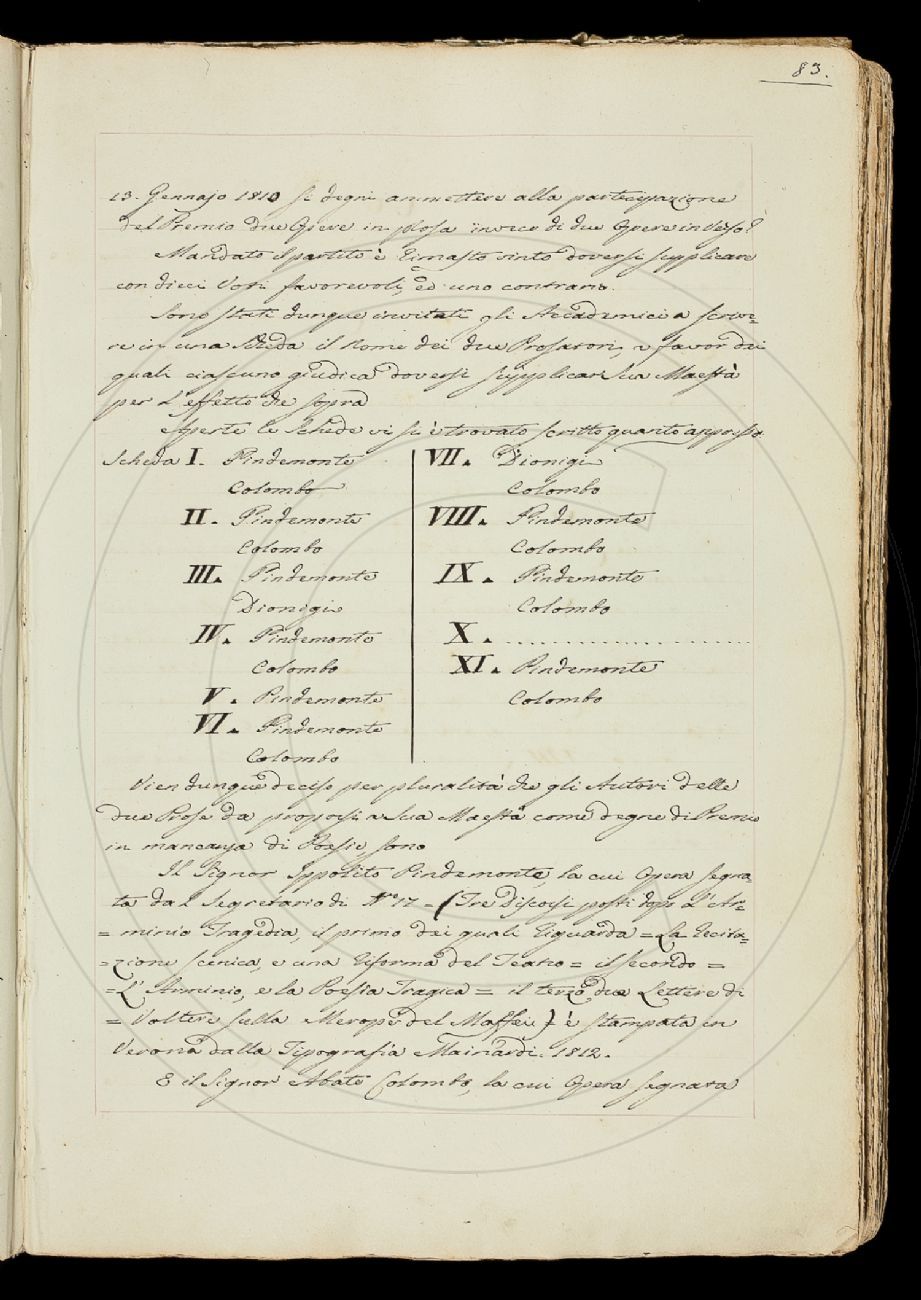 83.
13. Gennajo 1810 si degni ammettere alla partecipazione
del Premio due Opere in prosa invece di due Opere in Verso?
Mandato il partito è rimasto vinto doversi supplicare
con dieci Voti favorevoli, ed uno contrario.
Sono stati dunque invitati gli Accademici a scrive-
re in una Scheda il Nome dei due Prosatori, a favor dei
quali ciascuno giudica doversi supplicare Sua Maestà
per l'effetto che sopra
Aperte le Schede vi si è trovato scritto quanto appresso
Scheda I. Pindemonte
Colombo
II. Pindemonte
Colombo
III. Pindemonte
Dionigi
IV. Pindemonte
Colombo
V. Pindemonte
VI. Pindemonte
Colombo
VII. Dionigi
Colombo
VIII. Pindemonte
Colombo
IX. Pindemonte
Colombo
X. . . . . . . . . . . . . . . . . . . .
XI. Pindemonte
Colombo
Vien dunque deciso per pluralità che gli Autori delle
due Prose da proporsi a Sua Maestà come degne di Premio
in mancanza di Poesie, sono
Il Signor Ippolito Pindemonte, la cui Opera segna-
ta dal Segretario di N.° 17 = (Tre Discorsi posti dopo l'Ar=
= minio Tragedia, il primo dei quali riguarda = La Recita=
= zione scenica, e una riforma del Teatro = il secondo =
= L'Arminio, e la Poesia Tragica = il terzo due Lettere di
= Voltere sulla Merope del Maffei) è stampata in
Verona dalla Tipografia Mainardi. 1812.
E il Signor Abate Colombo, la cui Opera segnata